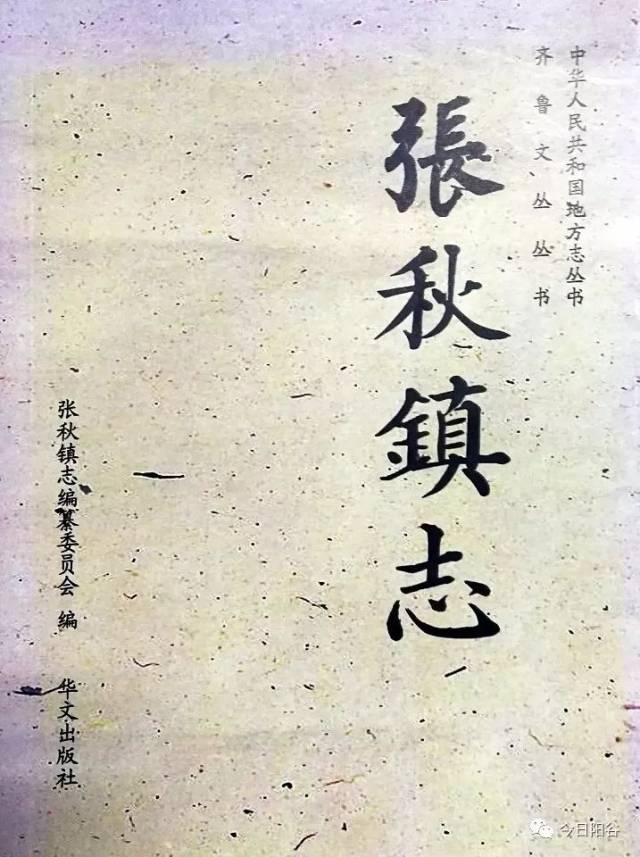 中华人民共和国地方志丛书
齐鲁文丛丛书
張秋鎮志
张秋镇志编纂委员会 编
华文出版社
今日阳谷